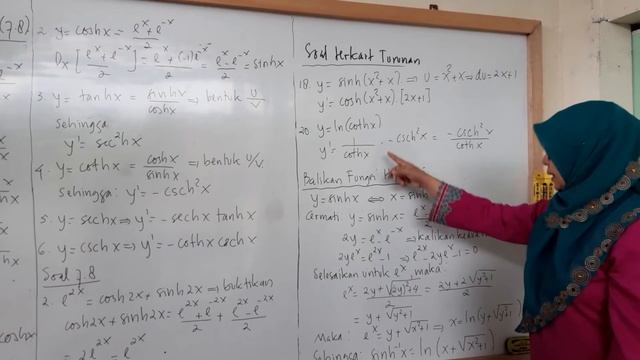 (7.8)
2. y = cosh x = e^x + e^-x / 2
Dx [e^x + e^-x / 2] = e^x + (-1)e^-x / 2 = e^x - e^-x / 2 = sinh x
3. y = tanh x = sinh x / cosh x ⇒ bentuk u/v
Sehingga
y' = sech²x
4. y = coth x = cosh x / sinh x ⇒ bentuk u/v.
Sehingga: y' = - csch²x
5. y = sech x ⇒ y' = - sech x tanh x
6. y = csch x ⇒ y' = - coth x csch x
Soal 7.8
2. e^2x = cosh 2x + sinh 2x ⇒ buktikan
cosh 2x + sinh 2x = e^2x + e^-2x / 2 + e^2x - e^-2x / 2
= 2e^2x = e^2x
Soal terkait Turunan
18. y = sinh (x²+x) ⇒ u = x²+x ⇒ du = 2x+1
y' = cosh (x²+x) . [2x+1]
20. y = ln (coth x)
y' = 1 / coth x . - csch²x = - csch²x / coth x
Balikan Fungsi
y = sinh x ⇔ x = sinh
Cermati y = sinh x = e^x
2y = e^x - e^-x ⇒ kalikan
2ye^x = e^2x - 1 ⇒ e^2x - 2ye^x - 1 = 0
Selesaikan untuk e^x, maka:
e^x = 2y + √(2y)²+4 / 2 = 2y + 2√y²+1 / 2
= y + √y²+1
Maka: e^x = y + √y²+1 ⇒ x = ln (y + √y²+1)
Sehingga: sinh^-1 x = ln (x + √x²+1)